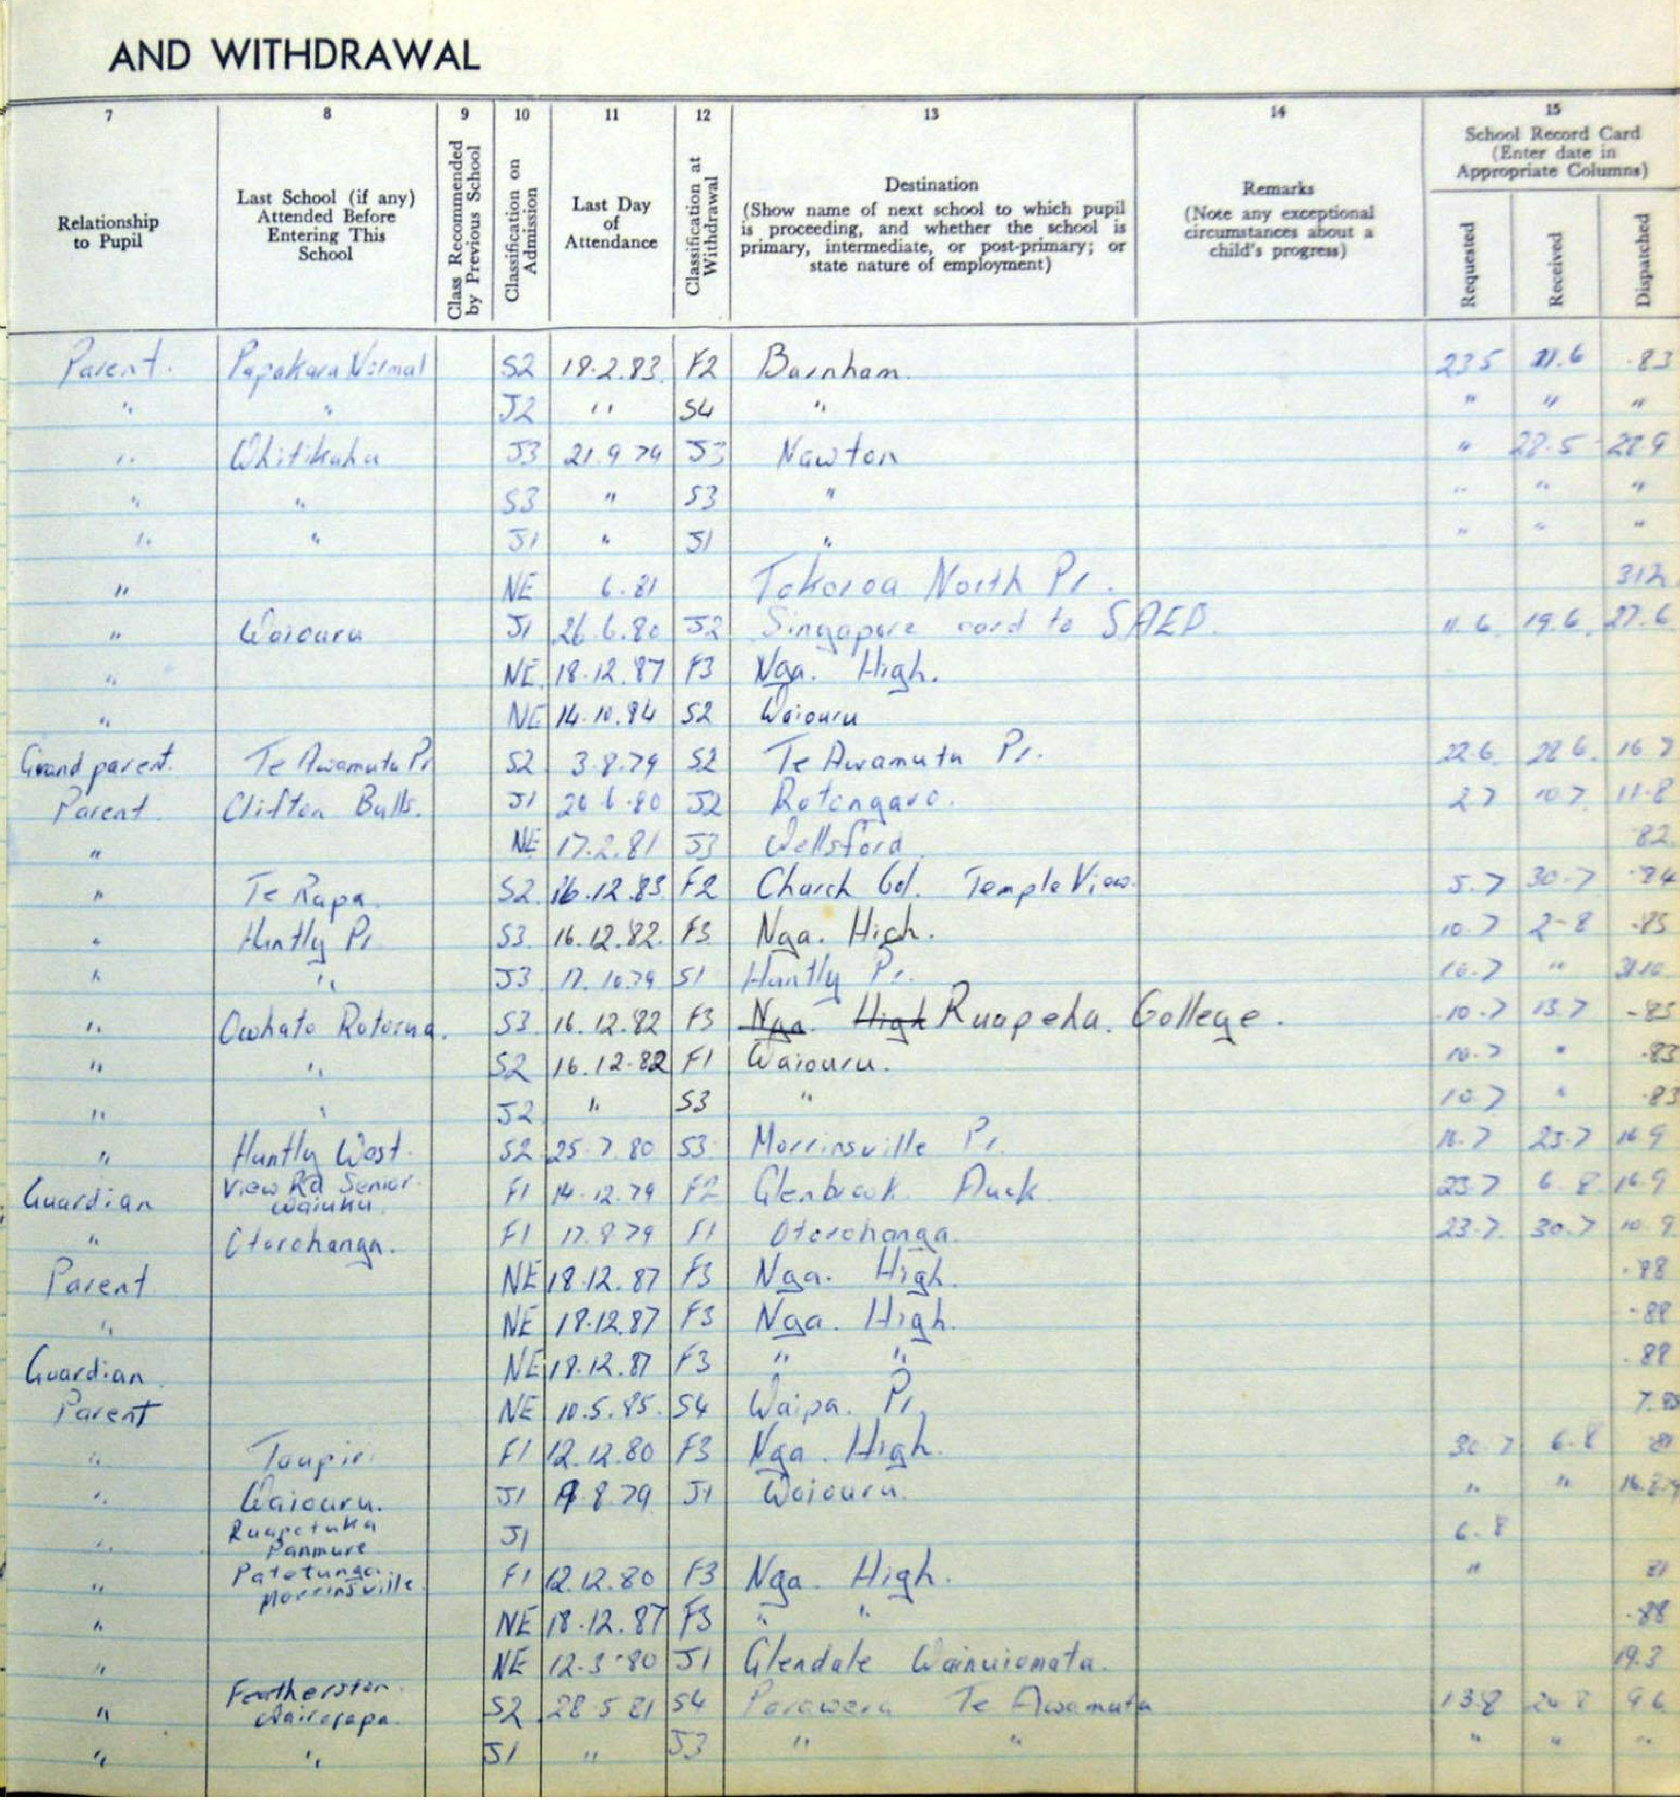 AND WITHDRAWAL
7 8 9 10 11 12 13 14 15
Relationship to Pupil
Last School (if any) Attended Before Entering This School
Class Recommended by Previous School
Classification on Admission
Last Day of Attendance
Classification at Withdrawal
Destination
(Show name of next school to which pupil is proceeding, and whether the school is primary, intermediate, or post-primary; or state nature of employment)
Remarks
(Note any exceptional circumstances about a child's progress)
School Record Card
(Enter date in Appropriate Columns)
Requested Received Dispatched
Parent. Papakura Normal S2 18.2.83 F2 Burnham. 23.5 11.6 .83
" " J2 " S4 " " " "
" Whitikahu J3 21.9.79 J3 Nawton " 28.5 28.9
" " S3 " S3 " " " "
" " J1 " J1 " " " "
" NE 6.81 Tokoroa North Pr. 31.2
" Waiouru J1 26.6.80 J2 Singapore card to 11.6 19.6 27.6
" NE 18.12.87 F3 Nga. High.
" NE 14.10.84 S2 Waiouru
Grand parent. Te Awamutu Pr S2 3.8.79 S2 Te Awamutu Pr. 22.6 28.6 16.7
Parent Clifton Bulls. J1 20.6.80 J2 Rotongaro. 2.7 10.7 11.8
" NE 17.2.81 J3 Wellsford. 82
" Te Rapa. S2 16.12.83 F2 Church Col. Temple View. 5.7 30.7 .84
" Huntly Pr S3 16.12.82. F3 Nga. High. 10.7 2-8 .85
" " J3 17.10.79 S1 Huntly Pr. 10.7 " 31.10
" Owhata Rotorua. S3 16.12.82 F3 Nga. High Ruapehu. College. 10.7 13.7 .85
" " S2 16.12.82 F1 Waiouru. 10.7 " .83
" " J2 " S3 " 10.7 " .83
" Huntly West. S2 25.7.80 S3 Morrinsville Pr. 16.7 23.7 16.9
Guardian View Rd Senior Waiuku F1 14.12.79 F2 Glenbrook Auck 23.7 6.8 16.9
" Otorohanga. F1 17.8.79 F1 Otorohanga. 23.7 30.7 10.9
Parent NE 18.12.87 F3 Nga. High. .88
" NE 18.12.87 F3 Nga. High. .88
Guardian. NE 18.12.87 F3 " " .88
Parent NE 10.5.85. S4 Waipa. Pr. 7.85
" Taupiri F1 12.12.80 F3 Nga. High. 30.7 6.8 81
" Waiouru. J1 8.79 J1 Waiouru. " "
" Ruapotaka Panmure J1 6.8
" Patetonga. Morrinsville. F1 12.12.80 F3 Nga. High. " 81
" NE 18.12.87 F3 " " .88
" NE 12.3.80 J1 Glendale Wainuiomata. 19.3
" Featherston Wairarapa. S2 28.5.81 S4 Parawera Te Awamutu 13.8 20.8 9.6
" " J1 " J3 " " " " "